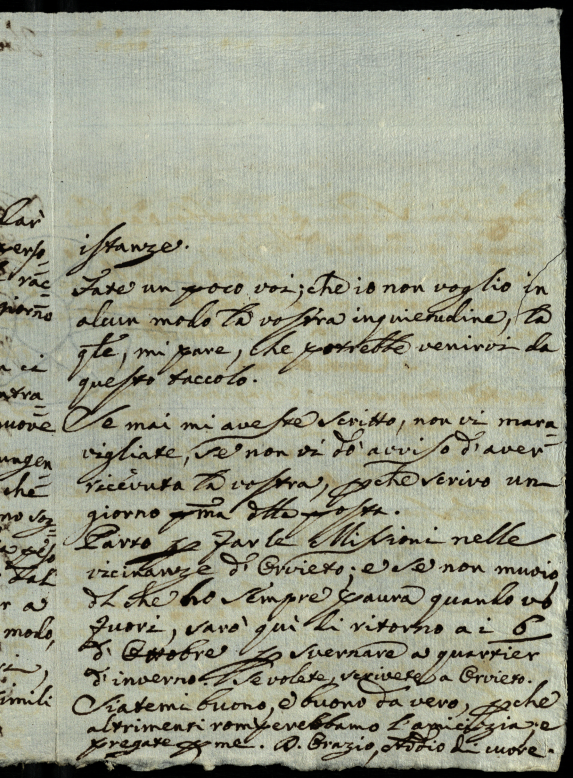 istanze.
Fate un poco voi; che io non voglio in
alcun modo la vostra inquietudine, la
qle, mi pare, che potrebbe venirvi da
questo taccolo.
Se mai mi aveste scritto, non vi mara=
vigliate, se non vi dò avviso d'aver
ricevuta la vostra, pche scrivo un
giorno pma dlla posta.
Parto p far le Missioni nelle
vicinanze d'Orvieto; e se non muoio
di che ho sempre paura quando vò
fuori, sarò quì di ritorno a i 6
d'Ottobre p svernare a quartier
d'inverno. Se volete, scrivete a Orvieto.
Siatemi buono, e buono da vero, pche
altrimenti romperebbamo l'amicizia: e
pregate p me. D. Orazio, Addio di cuore.
lar
verso
rac=
giorno
ci
ntra=
nuove
ungen
che
no sog=
a peso
tal
r a
modo,
simili